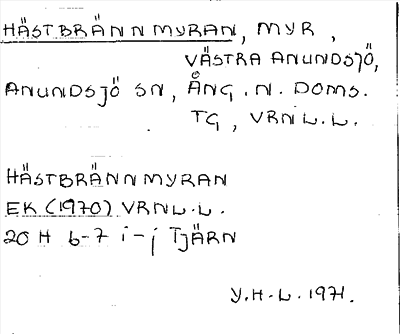 HÄSTBRÄNNMYRAN, MYR,
VÄSTRA ANUNDSJÖ,
ANUNDSJÖ SN, ÅNG. N. DOMS.
TG, VRNL.L.
HÄSTBRÄNNMYRAN
EK (1970) VRNL.L.
20 H 6-7 i-j TJÄRN
Y.H-L.1971.